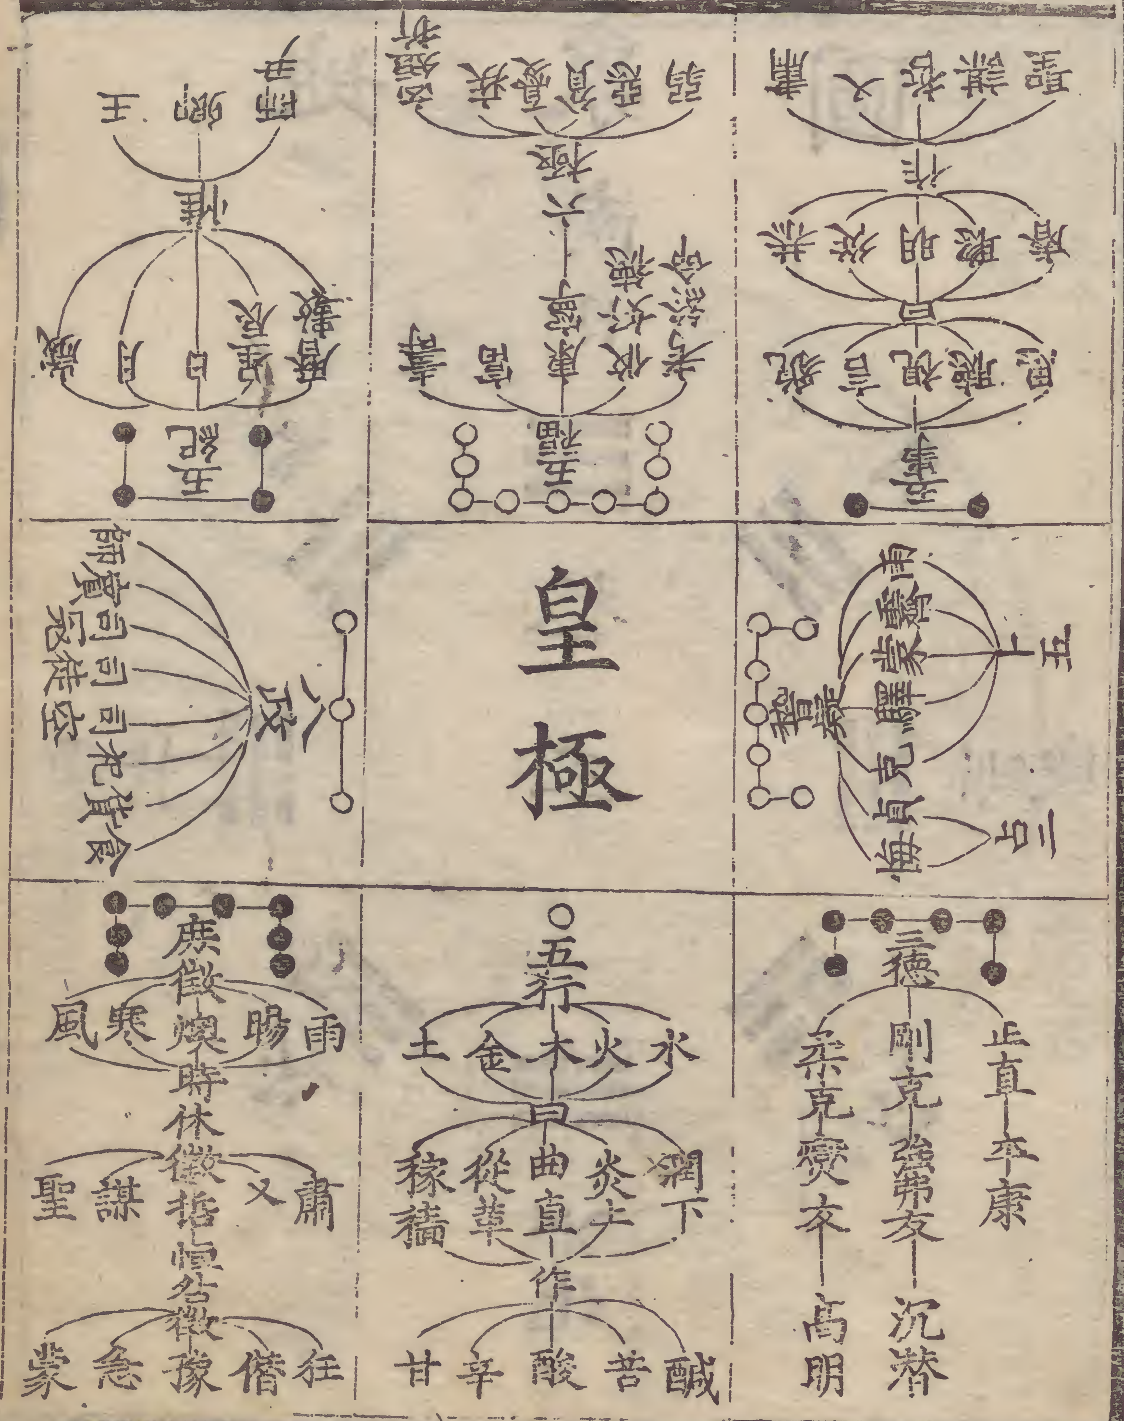 五事
貌 言 視 聽 思
曰
恭 從 明 聰 睿
作
肅 乂 哲 謀 聖
五福
壽 富 康寧 攸好德 考終命
六極
凶短折 疾 憂 貧 惡 弱
五紀
歲 月 日 星辰 曆數
惟
王 卿 師尹
稽疑
雨 霽 蒙 驛 克
貞 悔
卜五
占二
皇極
八政
食 貨 祀 司空 司徒 司寇 賓 師
三德
正直 平康
剛克 強弗友 沉潜
柔克 燮友 高明
五行
水 火 木 金 土
曰
潤下 炎上 曲直 從革 稼穡
作
鹹 苦 酸 辛 甘
庶徵
雨 暘 燠 寒 風
時
休徵
肅 乂 哲 謀 聖
恒
咎徵
狂 僭 豫 急 蒙